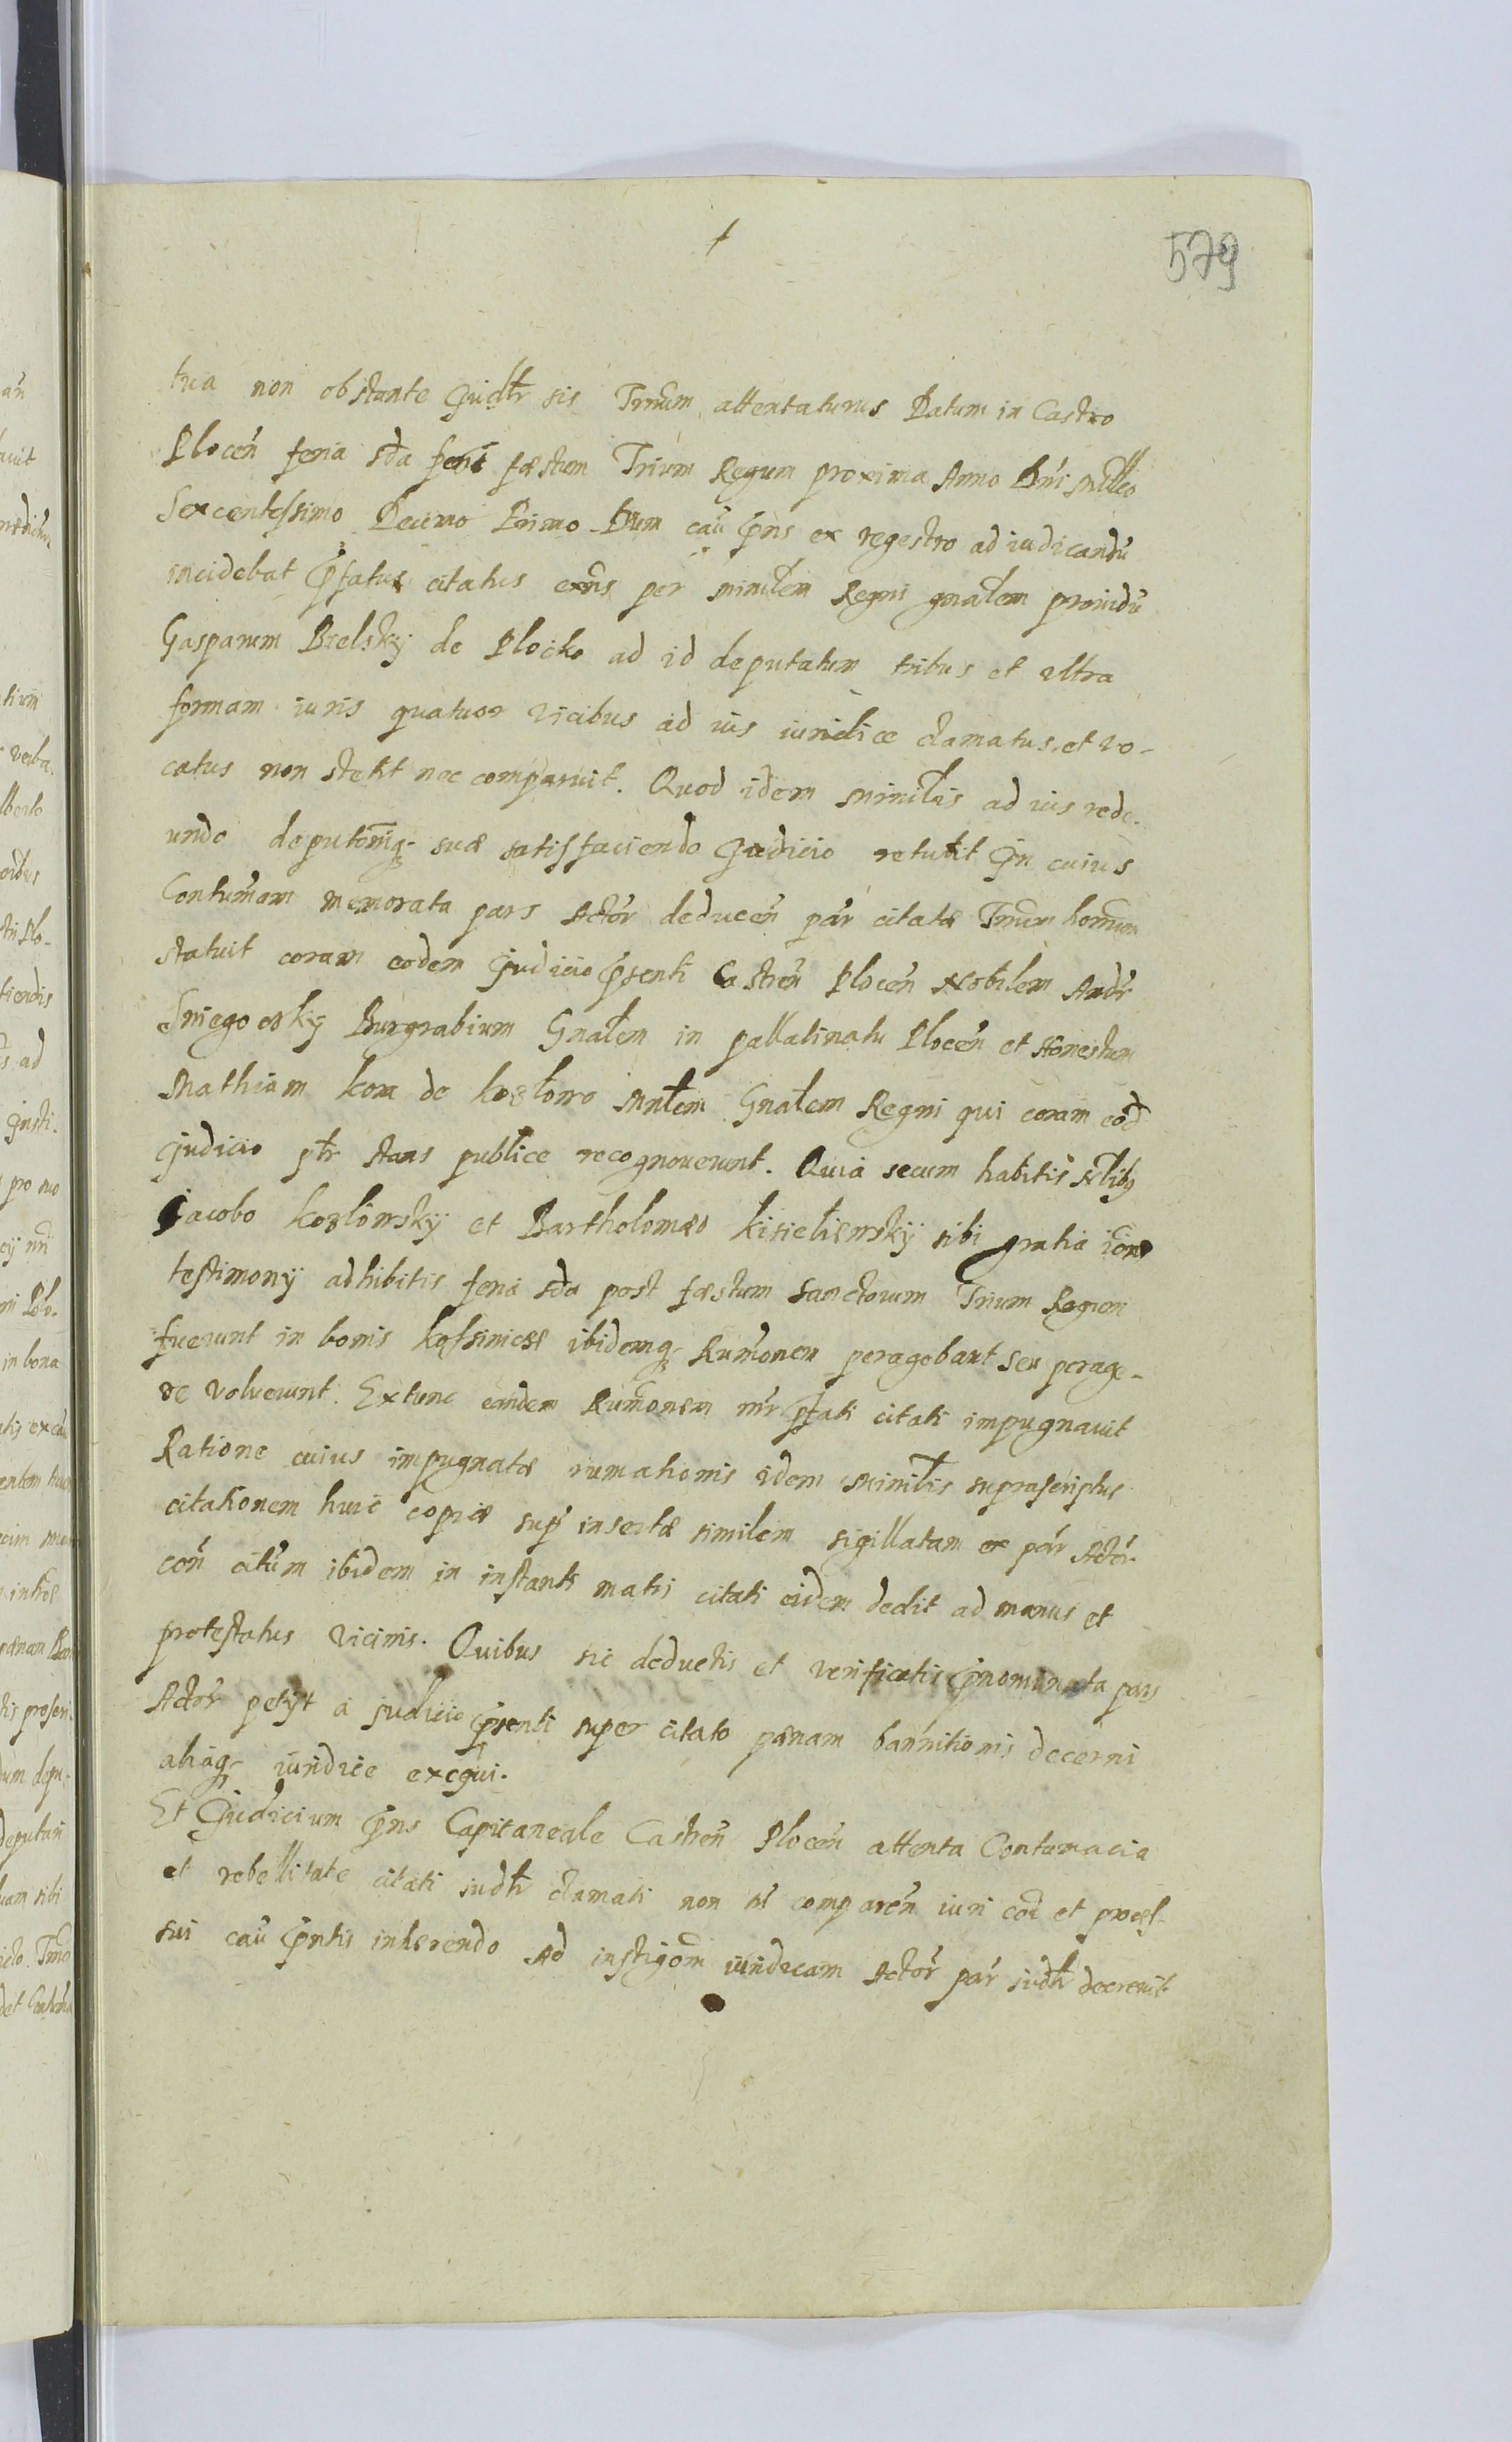 579
tua non obstante Judtr sis Trnum attentaturus Datum in Castro
Plocen feria sda post fæstum Trium Regum proxima Anno Dni Mlleo
Sexcentessimo Decimo Primo Dum cau pns ex regestro ad iudicandu
incidebat pfatus citatus exns per ministlem Regni gnalem prouidu
Gasparum Bielsky de Plocko ad id deputatum tribus et vltra
formam iuris quatuor vicibus ad ius iuridice clamatus et vo-
catus non stetit nec comparuit. Quod idem ministlis ad ius rede-
undo deputonisq suæ satisfaciendo Judicio retulit In cuius
Contumam memorata pars Actor deducen par citatæ Trnum hornum
statuit coram eodem Judicio psenti Castren Plocen Nobilem Andr
Sniegocky Burgrabium Gnalem in pallatinatu Plocen et Honestum
Mathiam kora de kozlowo Mnlem Gnalem Regni qui coram eod
Judicio ptr stans publice recognouerunt. Quia secum habitis Nlibq
Jacobo kozlowsky et Bartholomæo kisielewsky sibi gratia
testimony adhibitis feria sda post fæstum sanctorum Trium Regum
fuerunt in bonis kossinicze ibidemq Rumonem peragebant seu perage-
re voluerunt. Extunc eandem Rumonem mr pfati citati impugnauit
Ratione cuius impugnatæ rumationis idem ministlis suprascriptus
citationem huic copiæ sup insertæ similem sigillatam ex par Actor
con citum ibidem in instanti matri citati eidem dedit ad manus et
protestatus vicinis. Quibus sic deductis et verificatis pnominata pars
Actor petyt a judicio psenti super citato pænam bannitionis decerni
aliaq iuridice exequi.
Et Judicium pns Capitaneale Castren Plocen attenta Contumacia
et rebellitate citati iudtr clamati non comparen iuri coi et
sui cau pntis inherendo Ad instigom iuridicam Actor par iudtr decreuit